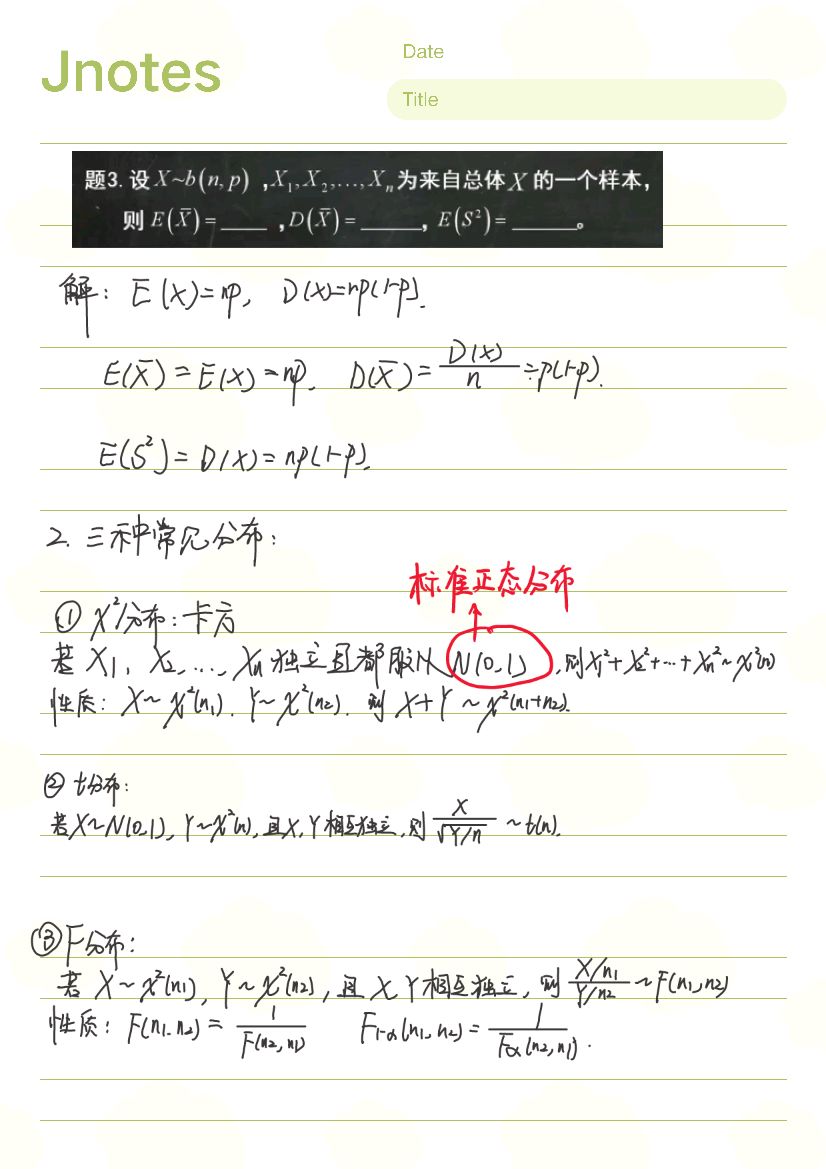 Jnotes
Date
Title
题3. 设 X~b(n, p) ,X₁, X₂,…, Xₙ 为来自总体 X 的一个样本，
则 E(X̄) = ____ , D(X̄) = _____, E(S²) = ______。
解: E(X)=np, D(X)=np(1-p).
E(X̄) = E(X) = np. D(X̄) = D(X)/n = p(1-p).
E(S²) = D(X) = np(1-p).
2. 三种常见分布:
标准正态分布
① χ²分布: 卡方
若 X₁, X₂, ..., Xₙ 独立且都服从 N(0,1), 则X₁²+X₂²+…+Xₙ²~χ²(n)
性质: X~χ²(n₁), Y~χ²(n₂). 则 X+Y ~χ²(n₁+n₂).
② t分布:
若X~N(0,1), Y~χ²(n), 且X, Y相互独立, 则 X/√(Y/n) ~t(n).
③ F分布:
若 X~χ²(n₁), Y~χ²(n₂), 且 X, Y 相互独立, 则 (X/n₁)/(Y/n₂) ~F(n₁,n₂)
性质: F(n₁,n₂) = 1/F(n₂,n₁) F₁₋α(n₁,n₂) = 1/Fα(n₂,n₁).